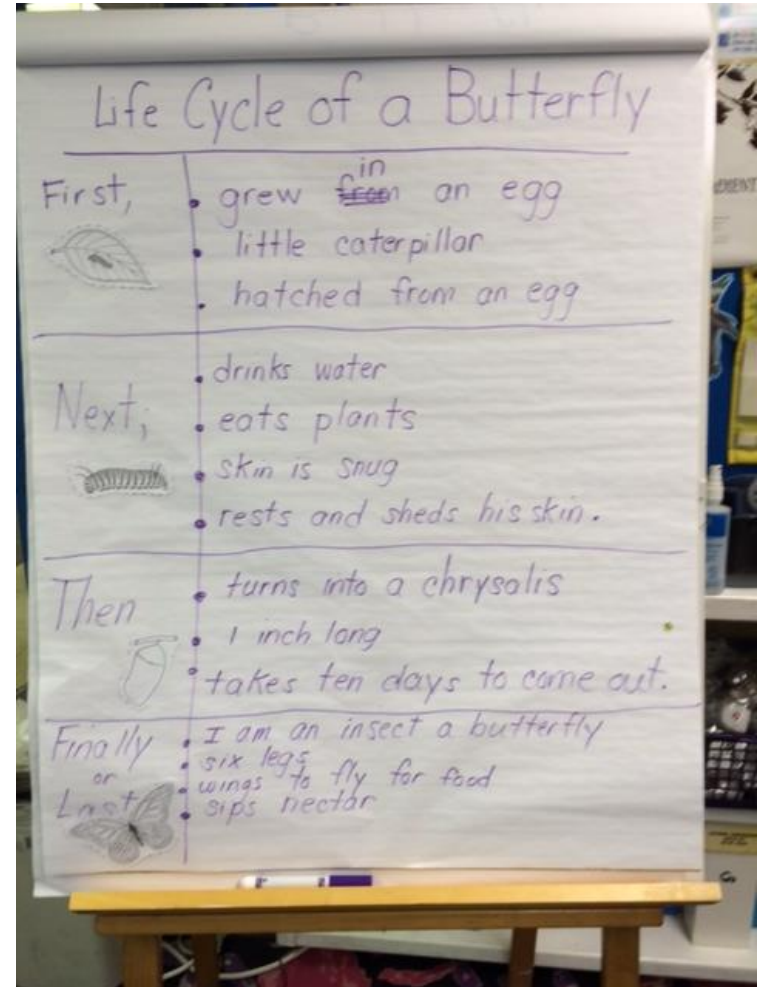 Life Cycle of a Butterfly
First,
• grew in an egg
• little caterpillar
• hatched from an egg
Next,
• drinks water
• eats plants
• skin is snug
• rests and sheds his skin.
Then
• turns into a chrysalis
• 1 inch long
• takes ten days to come out.
Finally
or
Last
• I am an insect a butterfly
• six legs
• wings to fly for food
• sips nectar